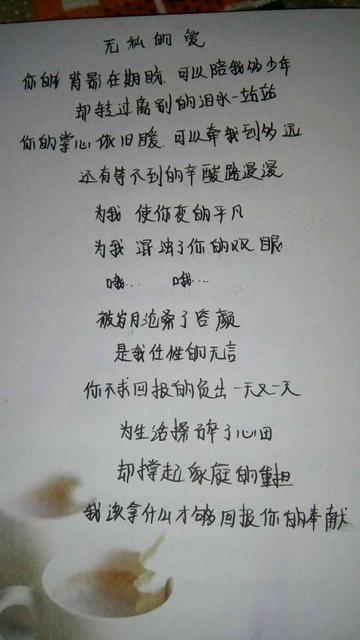 无私的爱
你的背影在期盼,可以陪我多少年
却转过离别的泪水一站站
你的掌心依旧暖,可以牵我到多远
还有等不到的辛酸路漫漫
为我 使你变的平凡
为我 浑浊了你的双眼
哦… 哦…
被岁月沧桑了容颜
是我任性的无言
你不求回报的负出一天又一天
为生活操碎了心田
却撑起家庭的重担
我该拿什么才够回报你的奉献